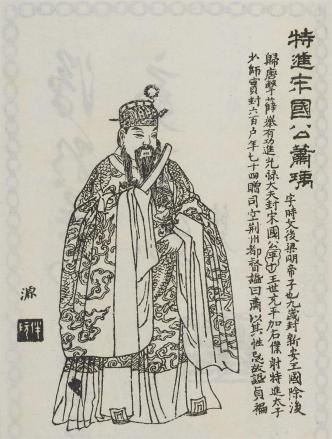 特進宋國公蕭瑀
字時文後梁明帝子也九歲封新安王國除後
歸唐擊薛舉有功進光祿大夫封宋國公王世充平加右僕射特進太子
少師實封六百戶年七十四贈司空荊州都督謚曰肅以其性忌故謚貞褊
源